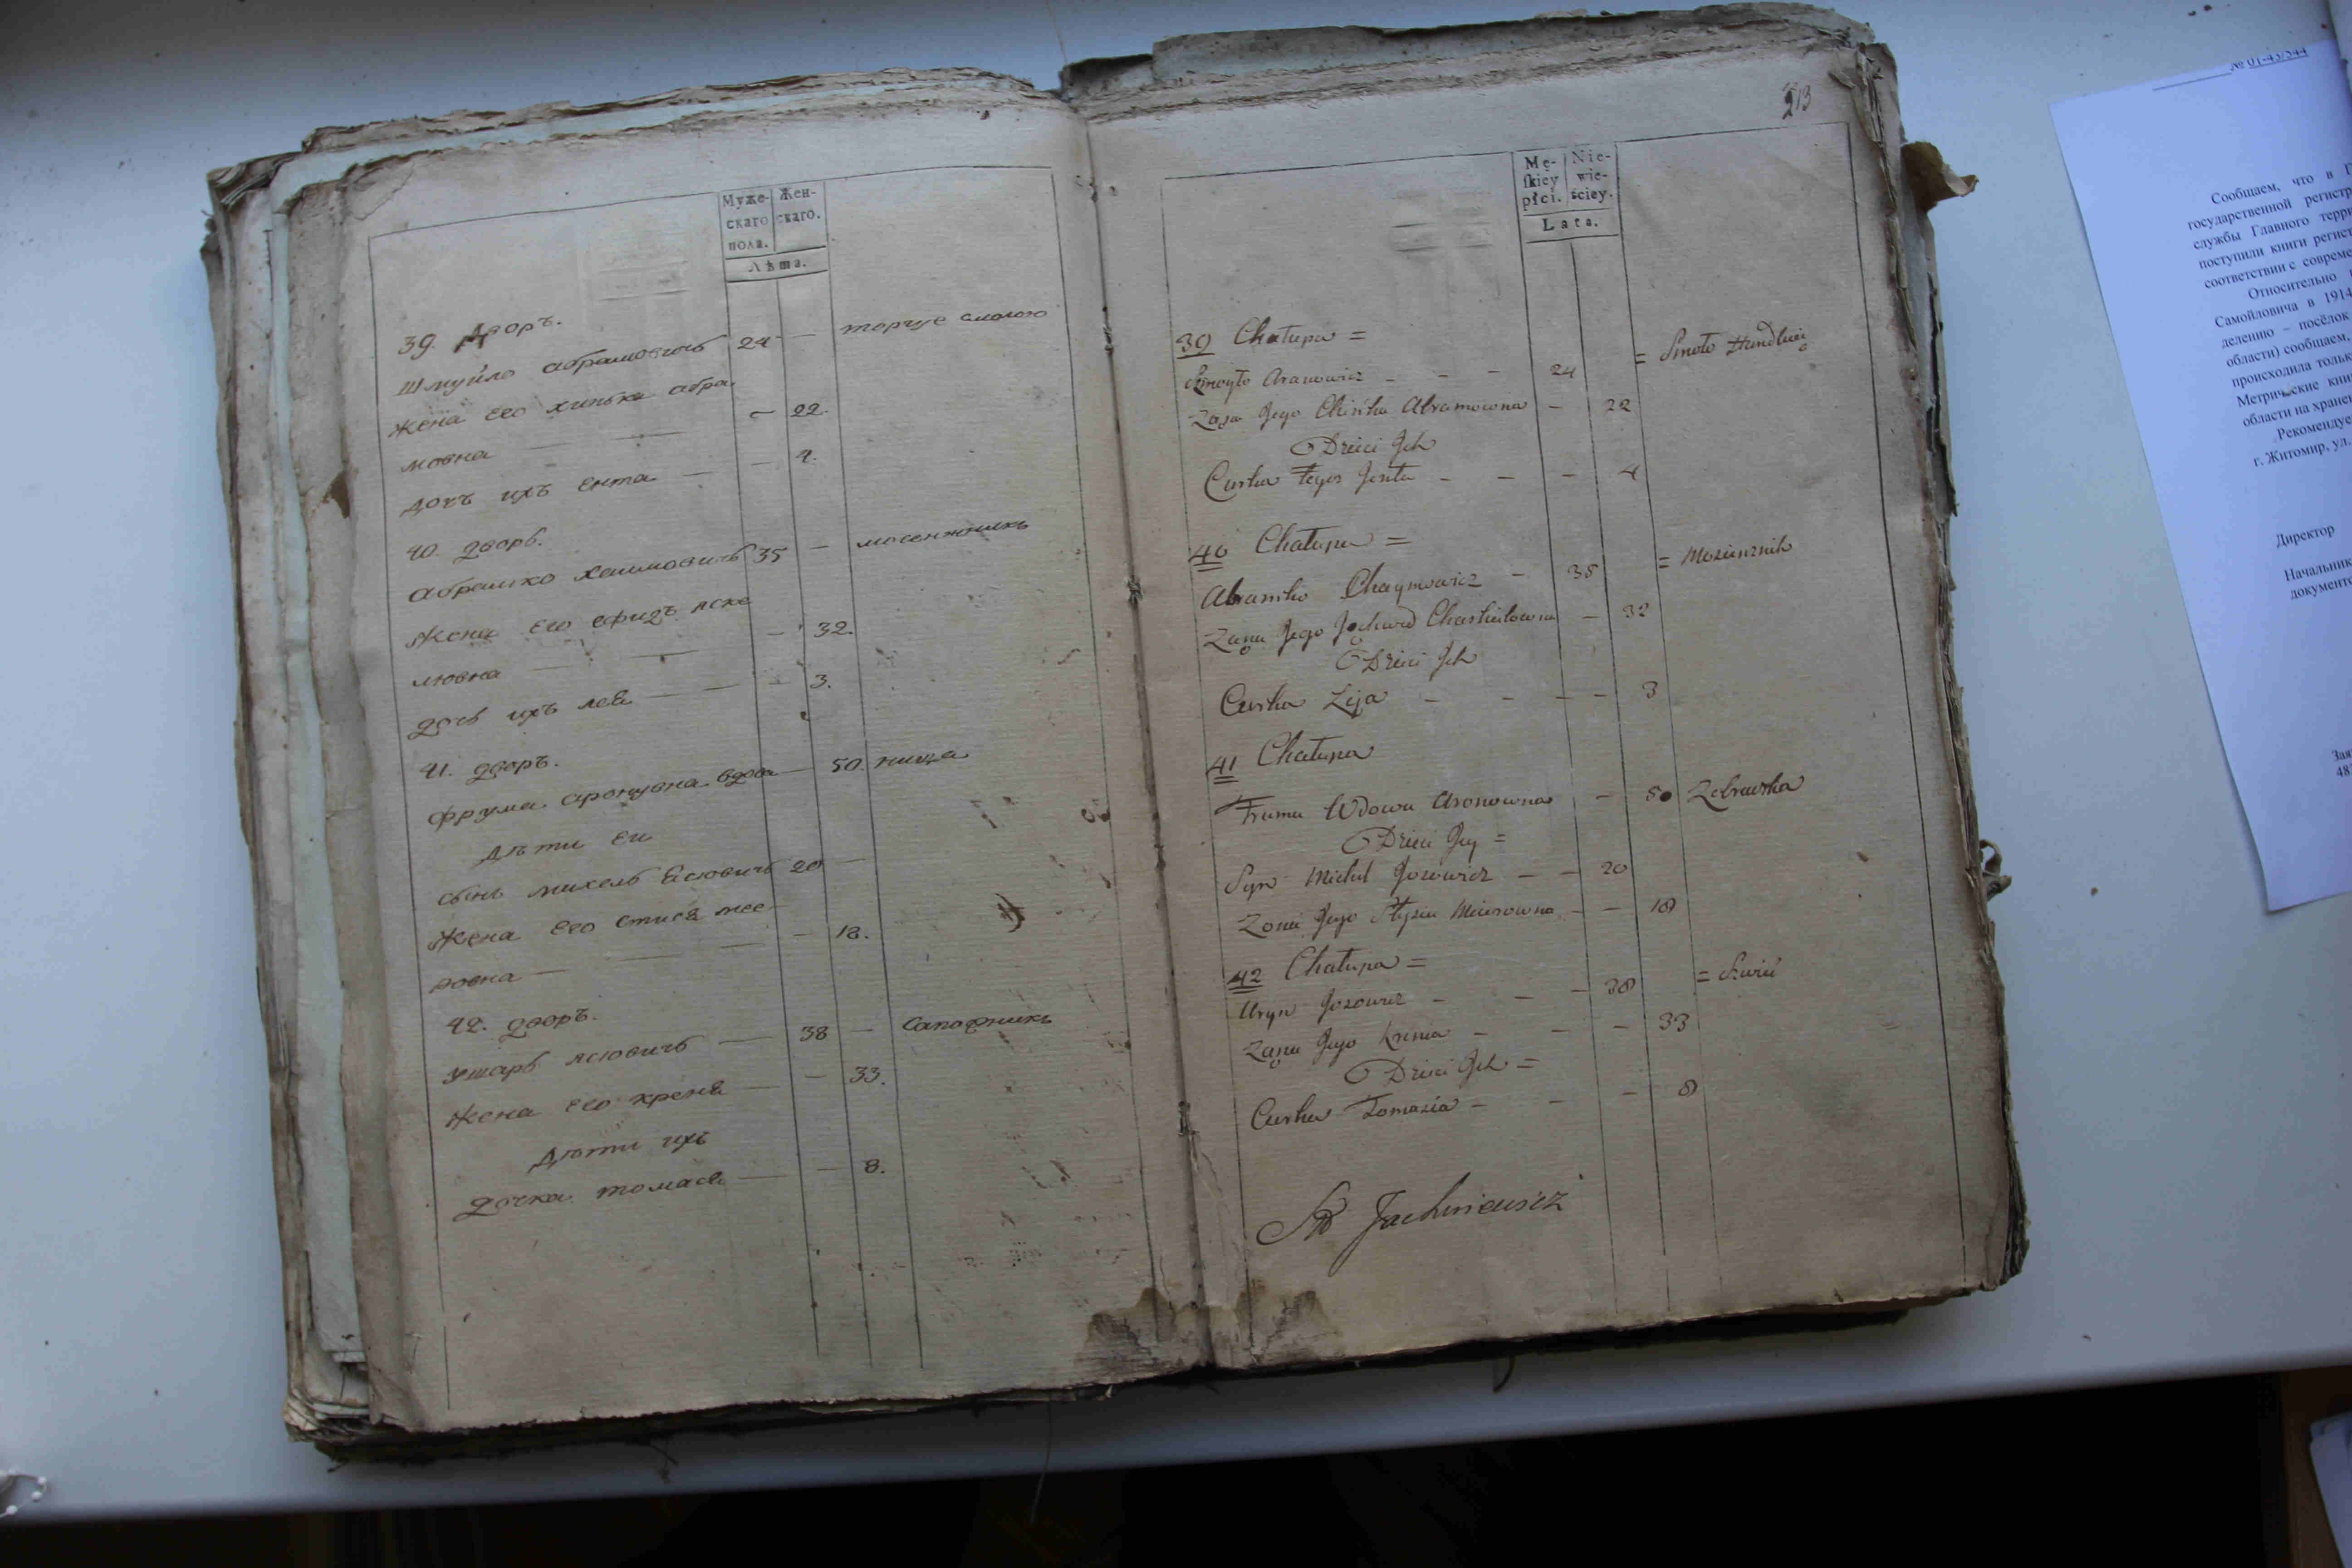 Муже-
скаго
пола.
Жен-
скаго.
Лѣта.
39. Дворъ.
Шмуйло Абрамовичь 24 — торгуе смолою
Жена его Хинька Абра
мовна — — — 22.
Дочъ ихъ Ента — — 4.
40. Дворъ.
Абрамко Хаимовичь 35 — мосенжникъ
Жена его
— — — 32.
Дочь ихъ Лея — — — 3.
41. Дворъ.
Фрума Аронувна вдова — 50. нища
Дѣти Еи
Сынъ Михель Есіовичь 20 —
Жена Его Стися мее
ровна — — — — 18.
42. Дворъ.
Ушаръ Ясіовичь — 38 — сапожникъ
Жена Его Хреня — — 33.
Дѣти ихъ
Дочка Томася — — 8.
213
Mę-
skiey
płci.
Nie-
wie-
ściey.
Lata.
39 Chałupa =
Szmuyło Aranowicz - - - 24 = Smoło Handluie
Zona Jego Chińka Abramowna - 22
Dzieci Jch
Curka Jenta - - - 4
40 Chałupa =
Abramko Chaymowicz - 35 = Mosienznik
Zona Jego Chaskielowna - 32
Dzieci Jch
Curka Leja - - - - 3
41 Chałupa
Fruma Wdowa Aronowna - 50 Zebraczka
Dzieci Jey =
Syn Michel Josiowicz - - 20
Zona Jego Stysia Meierowna - - 18
42 Chałupa =
Uryn Josiowicz - - - 38 = Szwiec
Zona Jego Krenia - - - 33
Dzieci Jch =
Curka Tomasia - - - 8
Jachniewicz
№ 01-43/344
Сообщаем, что в Г
государственной регистр
службы Главного терри
поступили книги регист
соответствии с совреме
Относительно
Самойловича в 1914
делению – посёлок
области) сообщаем,
происходила тольк
Метрические книг
области на хранен
Рекомендуе
г. Житомир, ул.
Директор
Начальник
документо
Зая
48